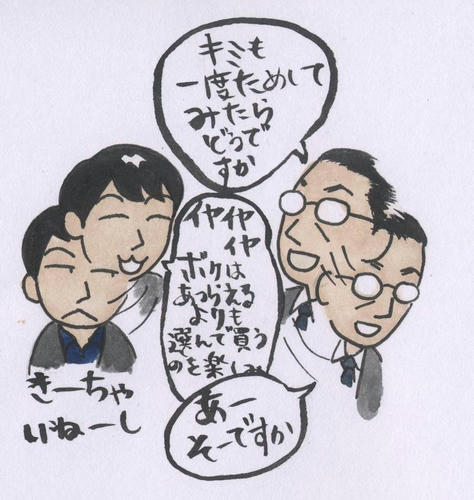 キミも
一度ためして
みたら
どうで
すか
イヤイヤ
イヤ
ボクは
あつらえる
よりも
選んで買う
のを楽しむ
あー
そーですか
きーちゃ
いねーし